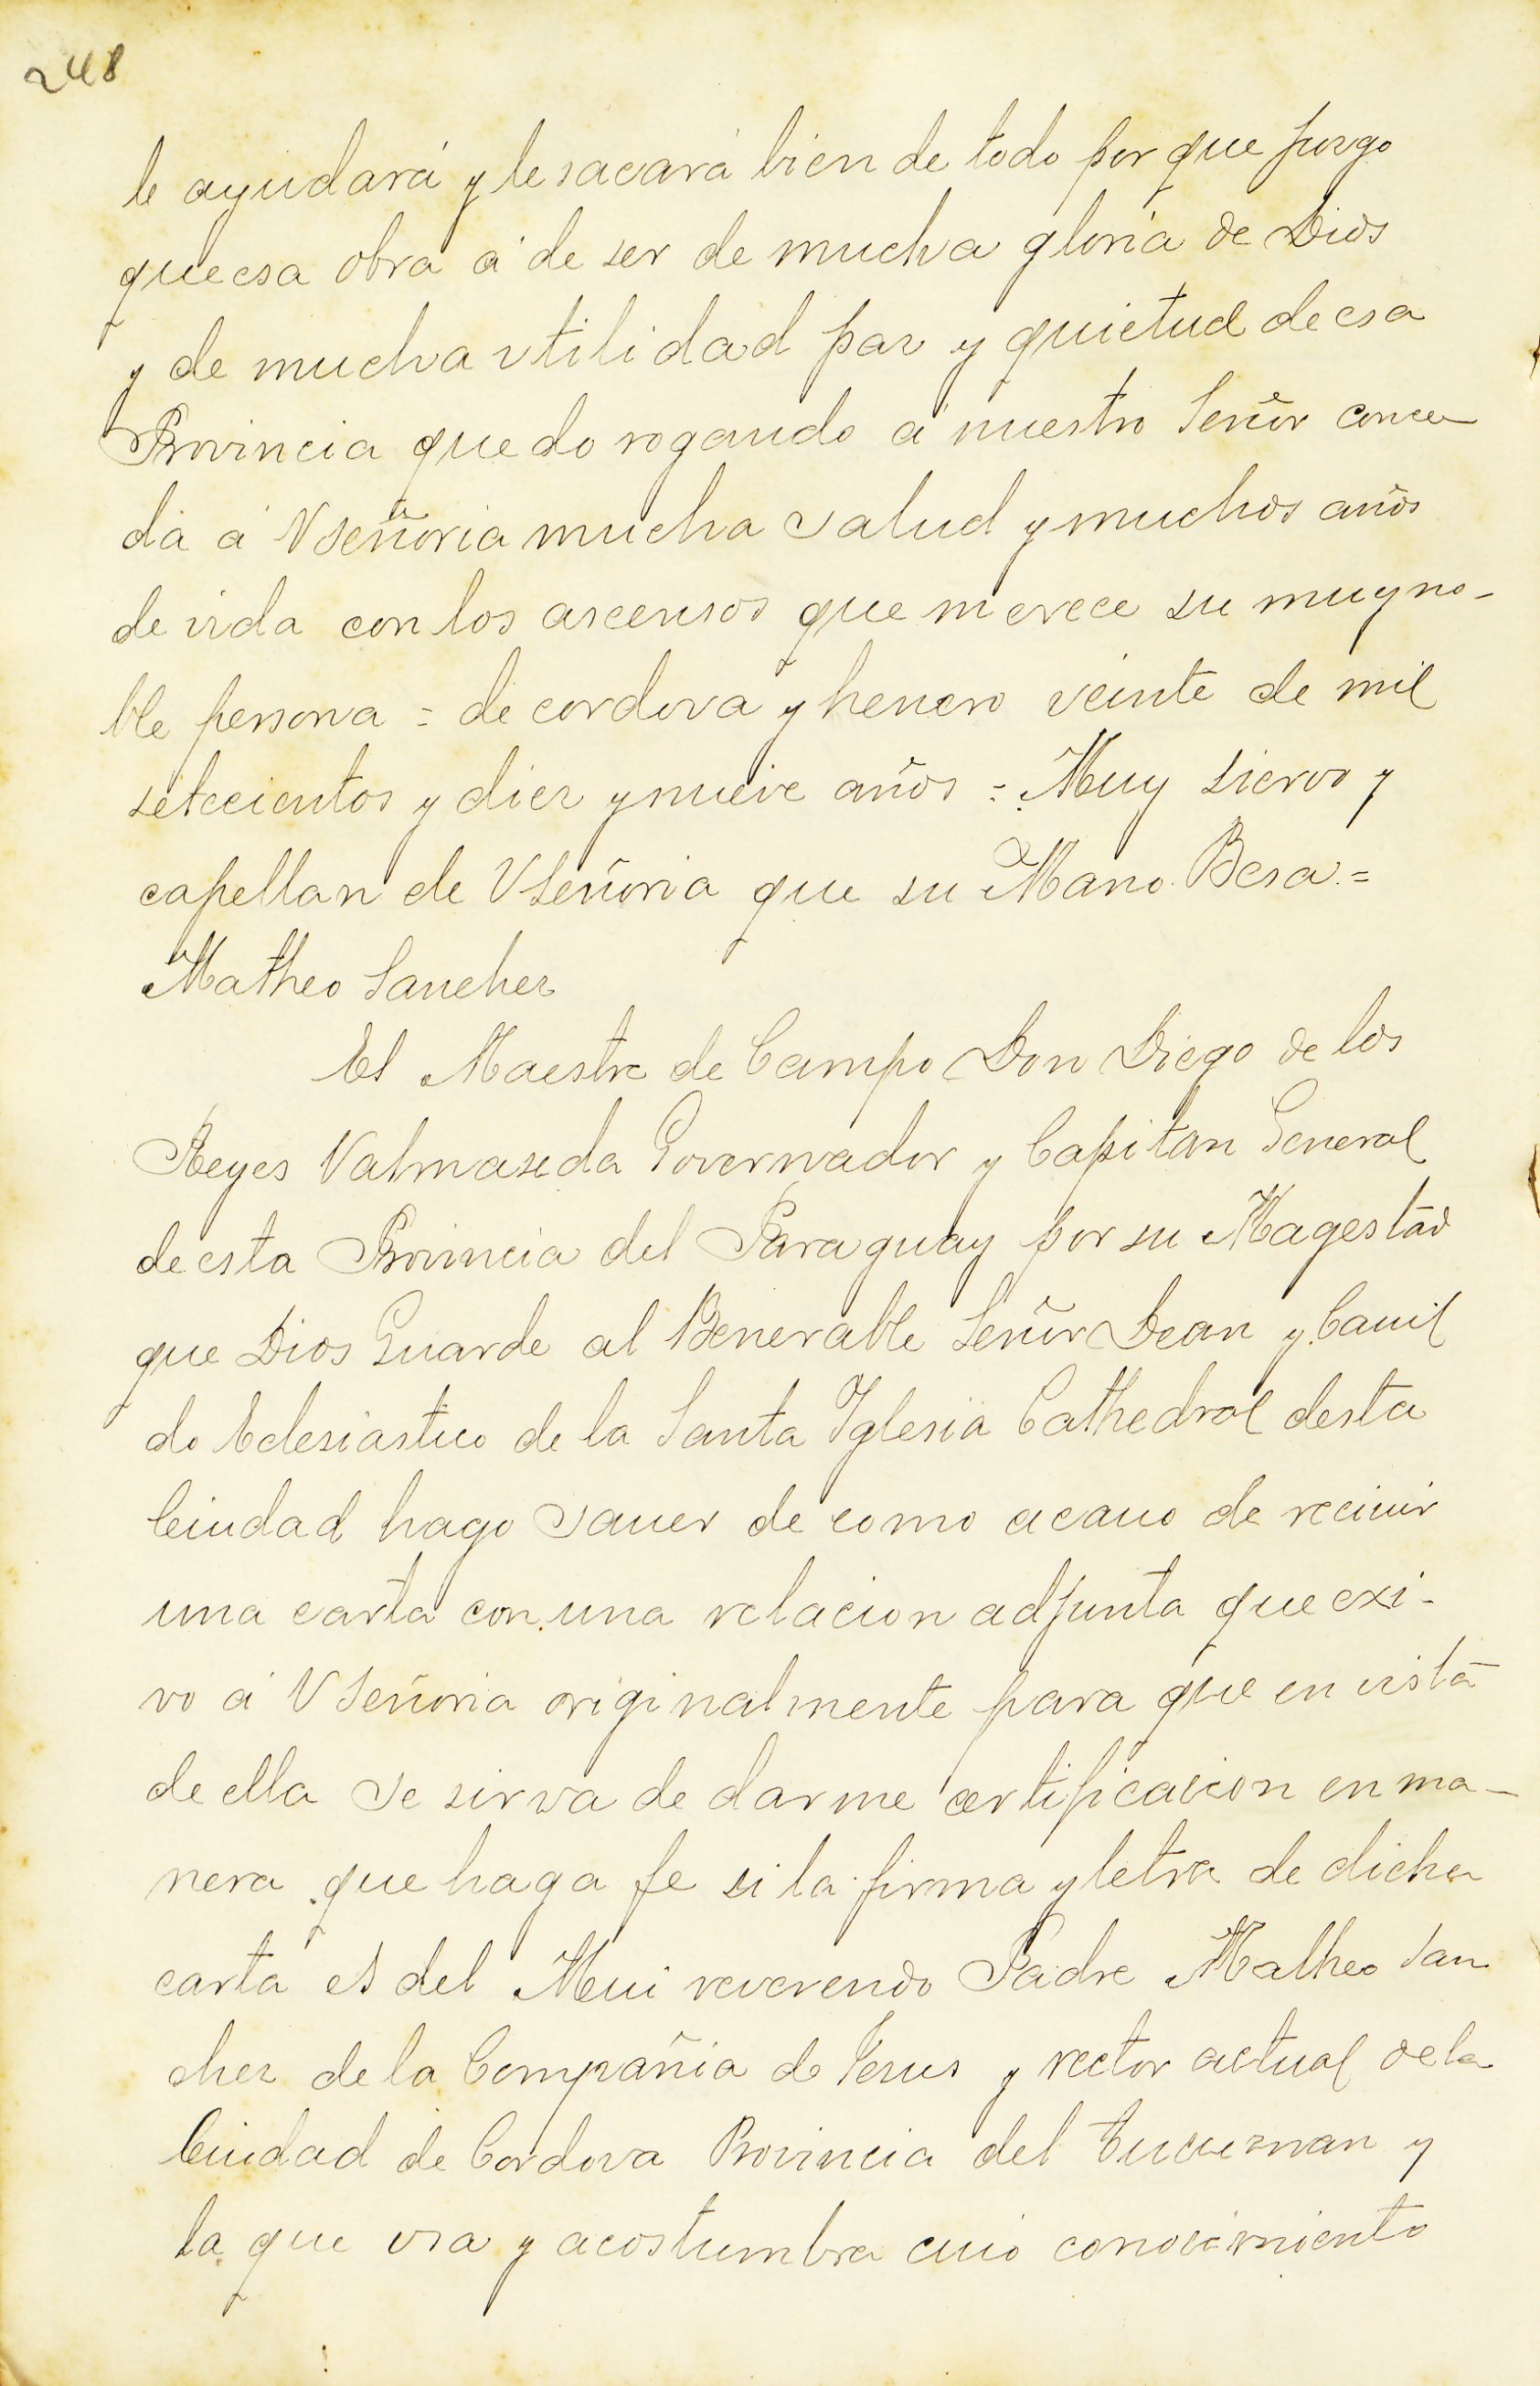 248
le ayudará y le sacará bien de todo por que jusgo
que esa obra á de ser de mucha gloria de Dios
y de mucha vtilidad paz y quietud de esa
Provincia quedo rogando á nuestro Señor conce
da á VSeñoria mucha salud y muchos años
de vida con los ascensos que merece su muy no-
ble persona = de cordova y henero veinte de mil
setecientos y diez y nueve años = Muy siervo y
capellan de VSeñoria que su Mano Besa =
Matheo Sanchez
El Maestre de Campo Don Diego de los
Reyes Valmaseda Governador y Capitan General
de esta Provincia del Paraguay por su Magestad
que Dios Guarde al Benerable Señor Dean y Cauil
do Eclesiastico de la Santa Iglesia Cathedral desta
Ciudad hago sauer de como acauo de reciuir
una carta con una relacion adjunta que exi-
vo á VSeñoria originalmente para que en vista
de ella se sirva de darme certificacion en ma-
nera que haga fe si la firma y letra de dicha
carta es del Mui reverendo Padre Matheo San
chez de la Compañia de Jesus y rector actual de la
Ciudad de Cordova Provincia del Tucuman y
la que vsa y acostumbra cuio conocimiento